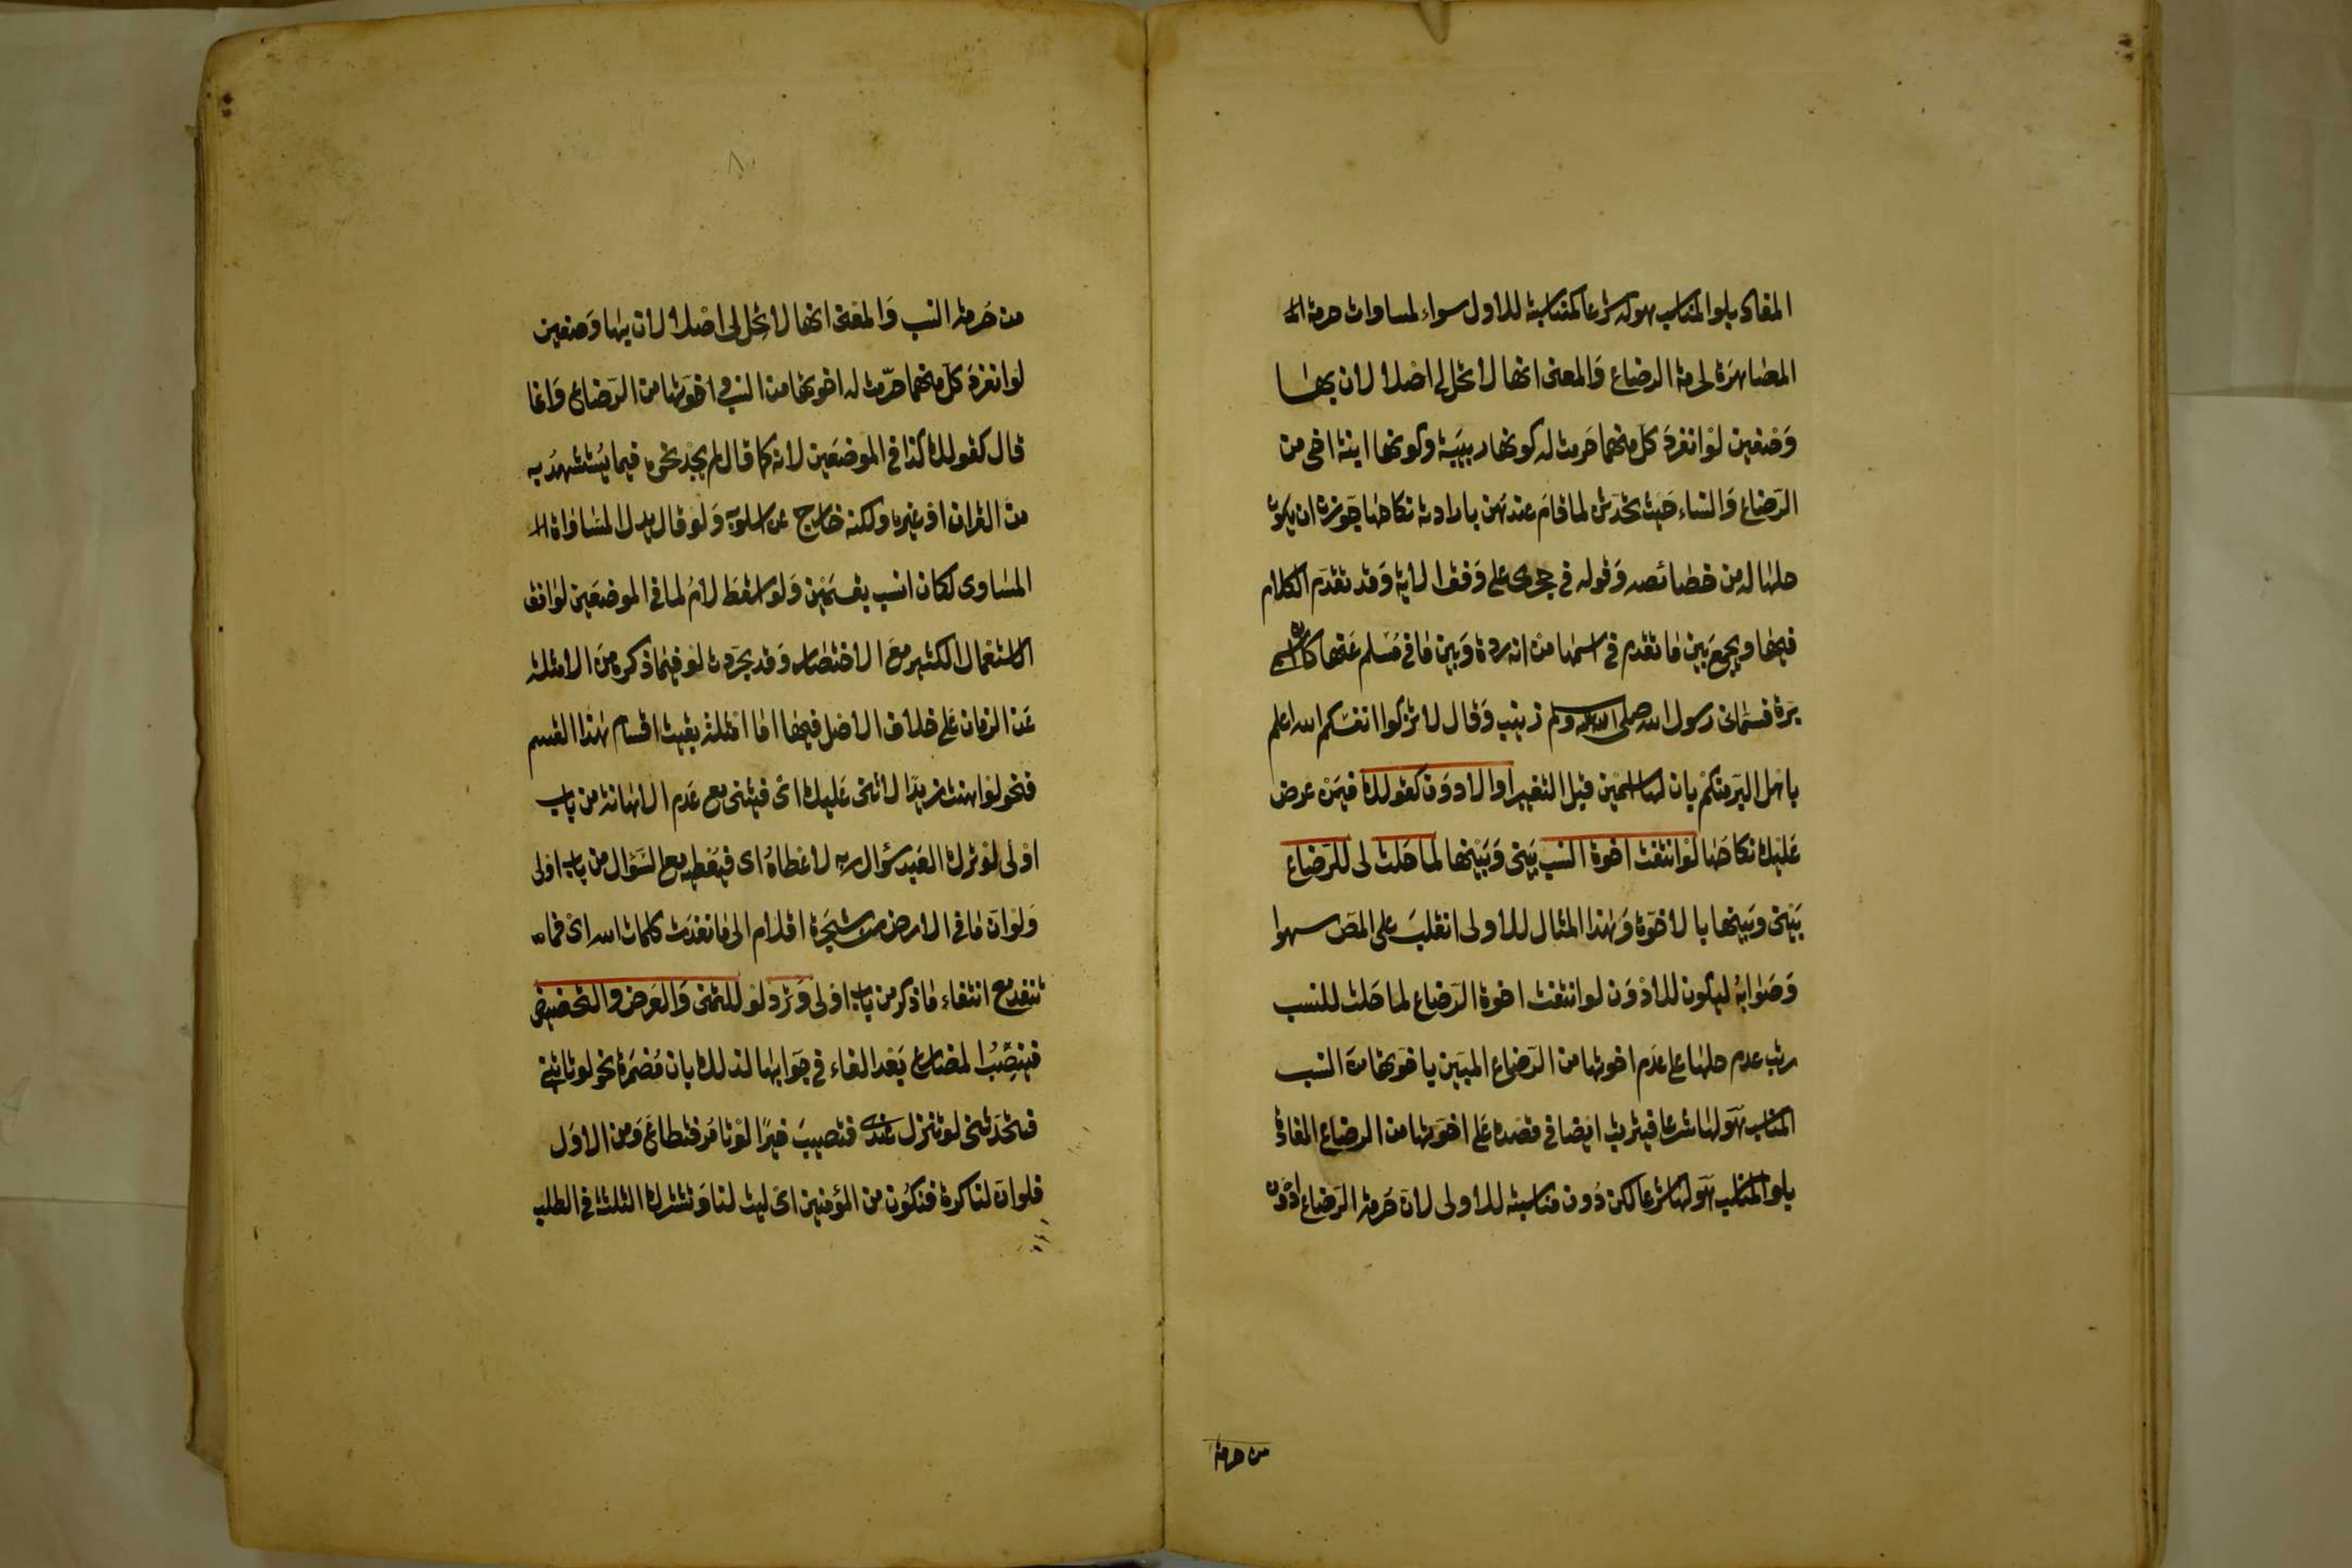 المفاد بلو المناسب هو له شرعا كمناسبته للاول سواء لمساوات حرمة الم
المصاهرة لحرمة الرضاع وَالمعنى انها لا تحل لى اصْلا لان بها
وَصْفين لوْ انفردَ كل منهما حَرمت له كونها ربيبَة وكونها ابنة اخى من
الرَضاع وَالنساء حَيث تحدَثن لما قامَ عندهن بارادته نكاحها جَوزن ان يكون
حلها له من خصَائصه وَقوله فى حجرى على وَفق الاية وَقد تقدَم الكلام
فيها ويجمع بَين مَا تقدم فى اسمها منْ انه درة وَبين مَا فى مُسْلم عَنها كان اسمى
بَرة فسَمانى رسول الله صلى الله عليه وسلم زينب وَقال لا تزكوا انفسَكم الله اعلم
باهل البَر منكمْ بان لها اسْمين قبل التغيير او الادوَن كقوْلك فيمَنْ عرض
عَليْك نكاحَها لوْ انتفت اخوة النسب بَينى وَبَيْنها لما حَلت لى للرَضاع
بَيْنى وبَينها بالاخوّة وَهٰذا المثال للاولى انقلبَ على المصَ سهوا
وَصَوَابهُ ليكون للادْوَن لو انتفت اخوة الرَضاع لما حَلت للنسب
رتب عدم حلها على عَدم اخوتها من الرَضاع المبَين باخوَتها منَ النسب
المناسب هوَ لها شرعا فيترتب ايضا فى قصَده على اخوَتها من الرضاع المفادة
بلو المناسب هوَ لها شرعا لكن دُون مناسبته للاولى لانَ حُرمة الرَضاع ادْوَن
من حرمة
من حَرمة النسب وَالمعْنى انها لا تحل لى اصْلا لان بها وَصفين
لوَ انفردَ كلَ منهما حرّمت له اخوتها من النسب و اخوَتها من الرَضاع وَانما
قال كقولك كذا فى الموضعَين لانه كما قال لم يجدْ نحوه فيما يُسْتشهدُ به
منَ القران اوْ غيره ولكنه خارج عن اسلوبه وَلوَ قال بدل المسَاوَاة الم
المسَاوى لكان انسب بقسَمَيْن وَلوَ اسْقط لامُ لما فى الموضعَين لوَافق
الاستعْمال الكثير معَ الاختصَار وَقد تجرَدت لوَ فيمَا ذكره منَ الامثلة
عَن الزمان عَلى خلاف الاصْل فيها امَا امْثلة بقيَة اقسَام هٰذا القسم
فنحو لوْ اهنت زيدًا لاثنى عَليك اىْ فيثنى مع عَدم الاهَانة من بَاب
اوْلى لوْ ترك العَبد سؤال ربه لاعْطاهُ اى فيعْطيه معَ السَؤال من باب اولى
وَلوْ انَ مَا فى الارض من شجَرة اقلام الى مَا نفدَت كلمات الله اىْ فما
تنفد معَ انتفاء مَا ذكر من بَاب اوْلى وَ ترد لوْ للتمنى وَالعَرض وَالتحضيض
فينصَبُ المضارع بَعْد الفاء فى جوَابها لذلك بان مُضمَرة نحو لوْ تاتينى
فتحَدَثنى لوْ تنزل عَندى فتصيبَ خيرًا لوْ تامُر فتطاعَ وَمن الاوَل
فلوْ انَ لنا كرة فنكوُن من المؤمنين اىْ ليت لنا وَ تشترك الثلثة فى الطلب